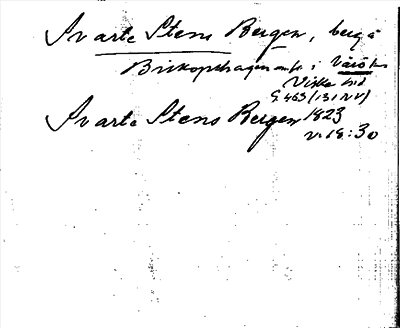 Svarte Stens Bergen, berg å
Biskopshagen i Värö sn
Viske hd
G. 463 (131 NV)
Svarte Stens Bergen 1823
v. 18:30